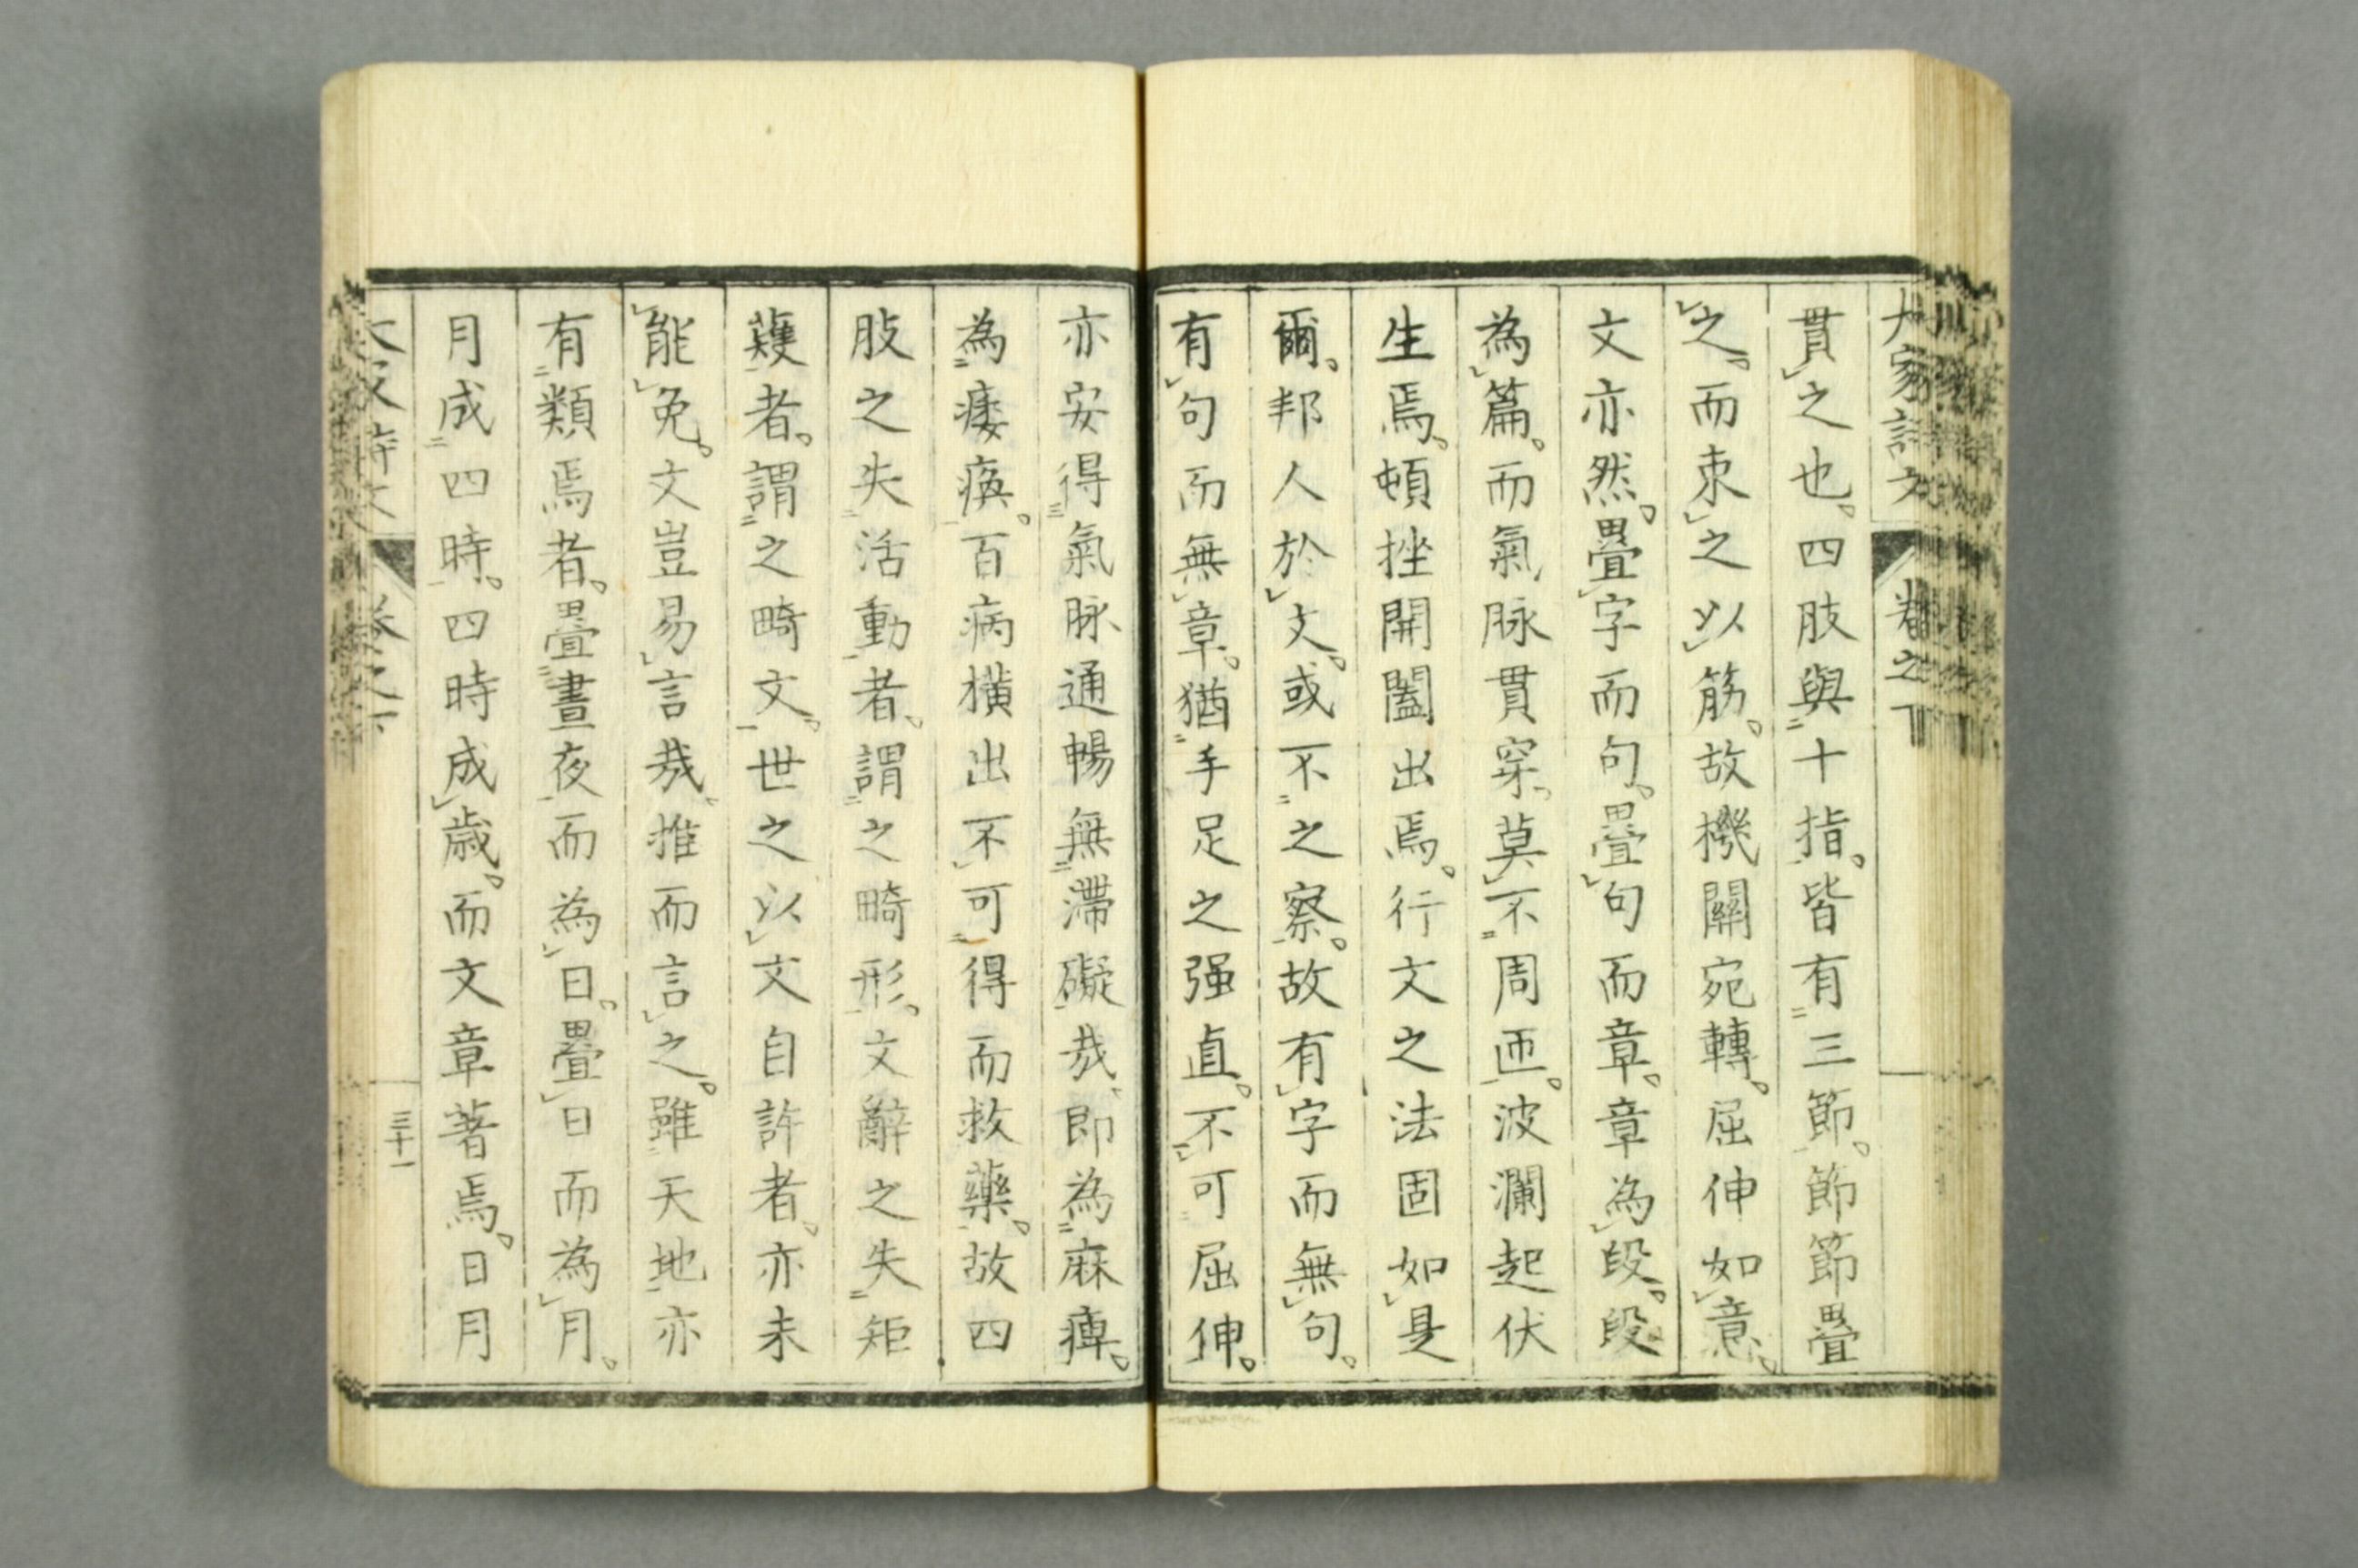 貫之也。四肢與十指。皆有三節。節節疊
之。而束之以筋。故機關宛轉。屈伸如意。
文亦然。疊字而句。疊句而章。章為段。段
為篇。而氣脉貫穿、莫不周匝。波瀾起伏
生焉。頓挫開闔出焉。行文之法固如是
爾。邦人於文。或不之察。故有字而無句。
有句而無章。猶手足之强直。不可屈伸。
亦安得氣脉通暢無滯礙哉、即為麻痺。
為痿瘓。百病橫出不可得而救藥。故四
肢之失活動者。謂之畸形。文辭之失矩
矱者。謂之畸文。世之以文自許者。亦未
能免。文豈易言哉、推而言之。雖天地亦
有類焉者。疊晝夜而為日。疊日而為月。
月成四時。四時成歲。而文章著焉。日月
卷之下
三十一